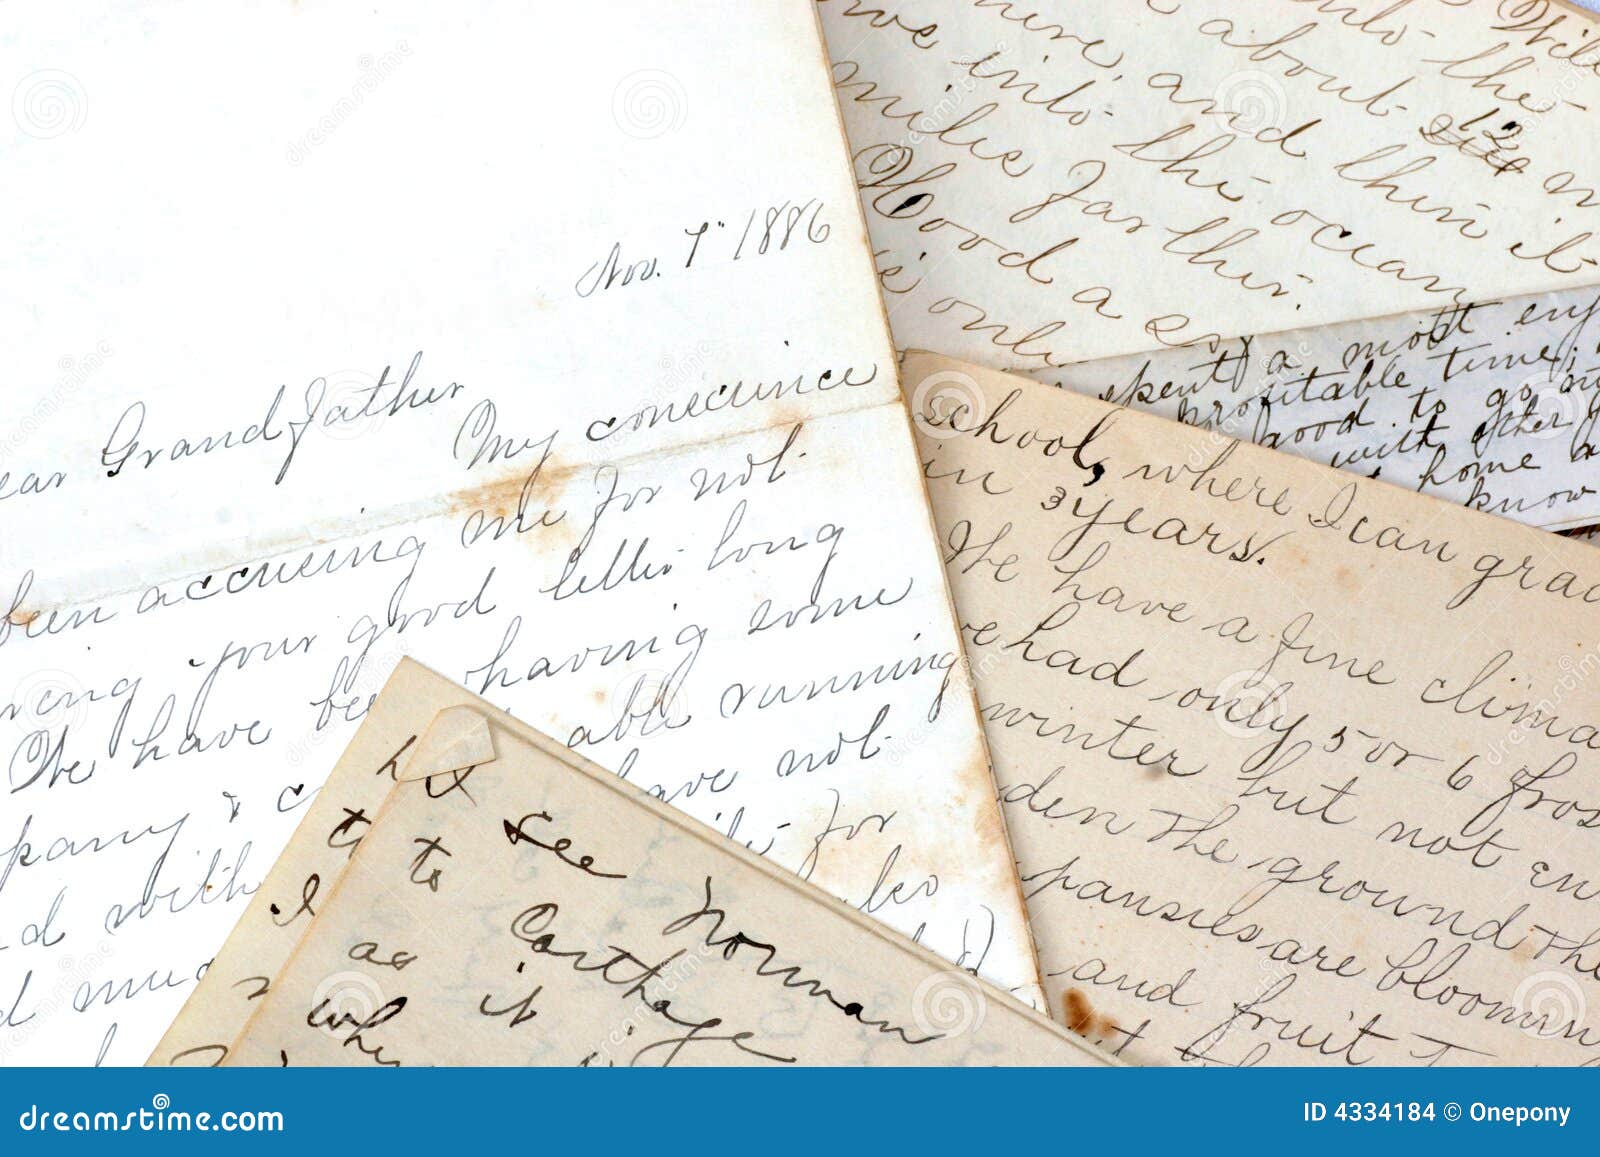 Nov. 7" 1886
ear Grandfather
My conscience
been accusing me for not
ring your good letter long
We have been having some
able running
pany & c have not
d with for
d muc
here, and about
into the
12
ve into the ocean then it
miles farther.
Wood a
is only
spent a most enj
profitable time;
good to go
with other
home a
know
school, where I can grad
in 3 years.
We have a fine clima
ve had only 5 or 6 fros
winter but not en
den the ground the
pansies are bloomin
and fruit
see Norman
to Carthage
as it
I
dreamstime.com
ID 4334184 © Onepony